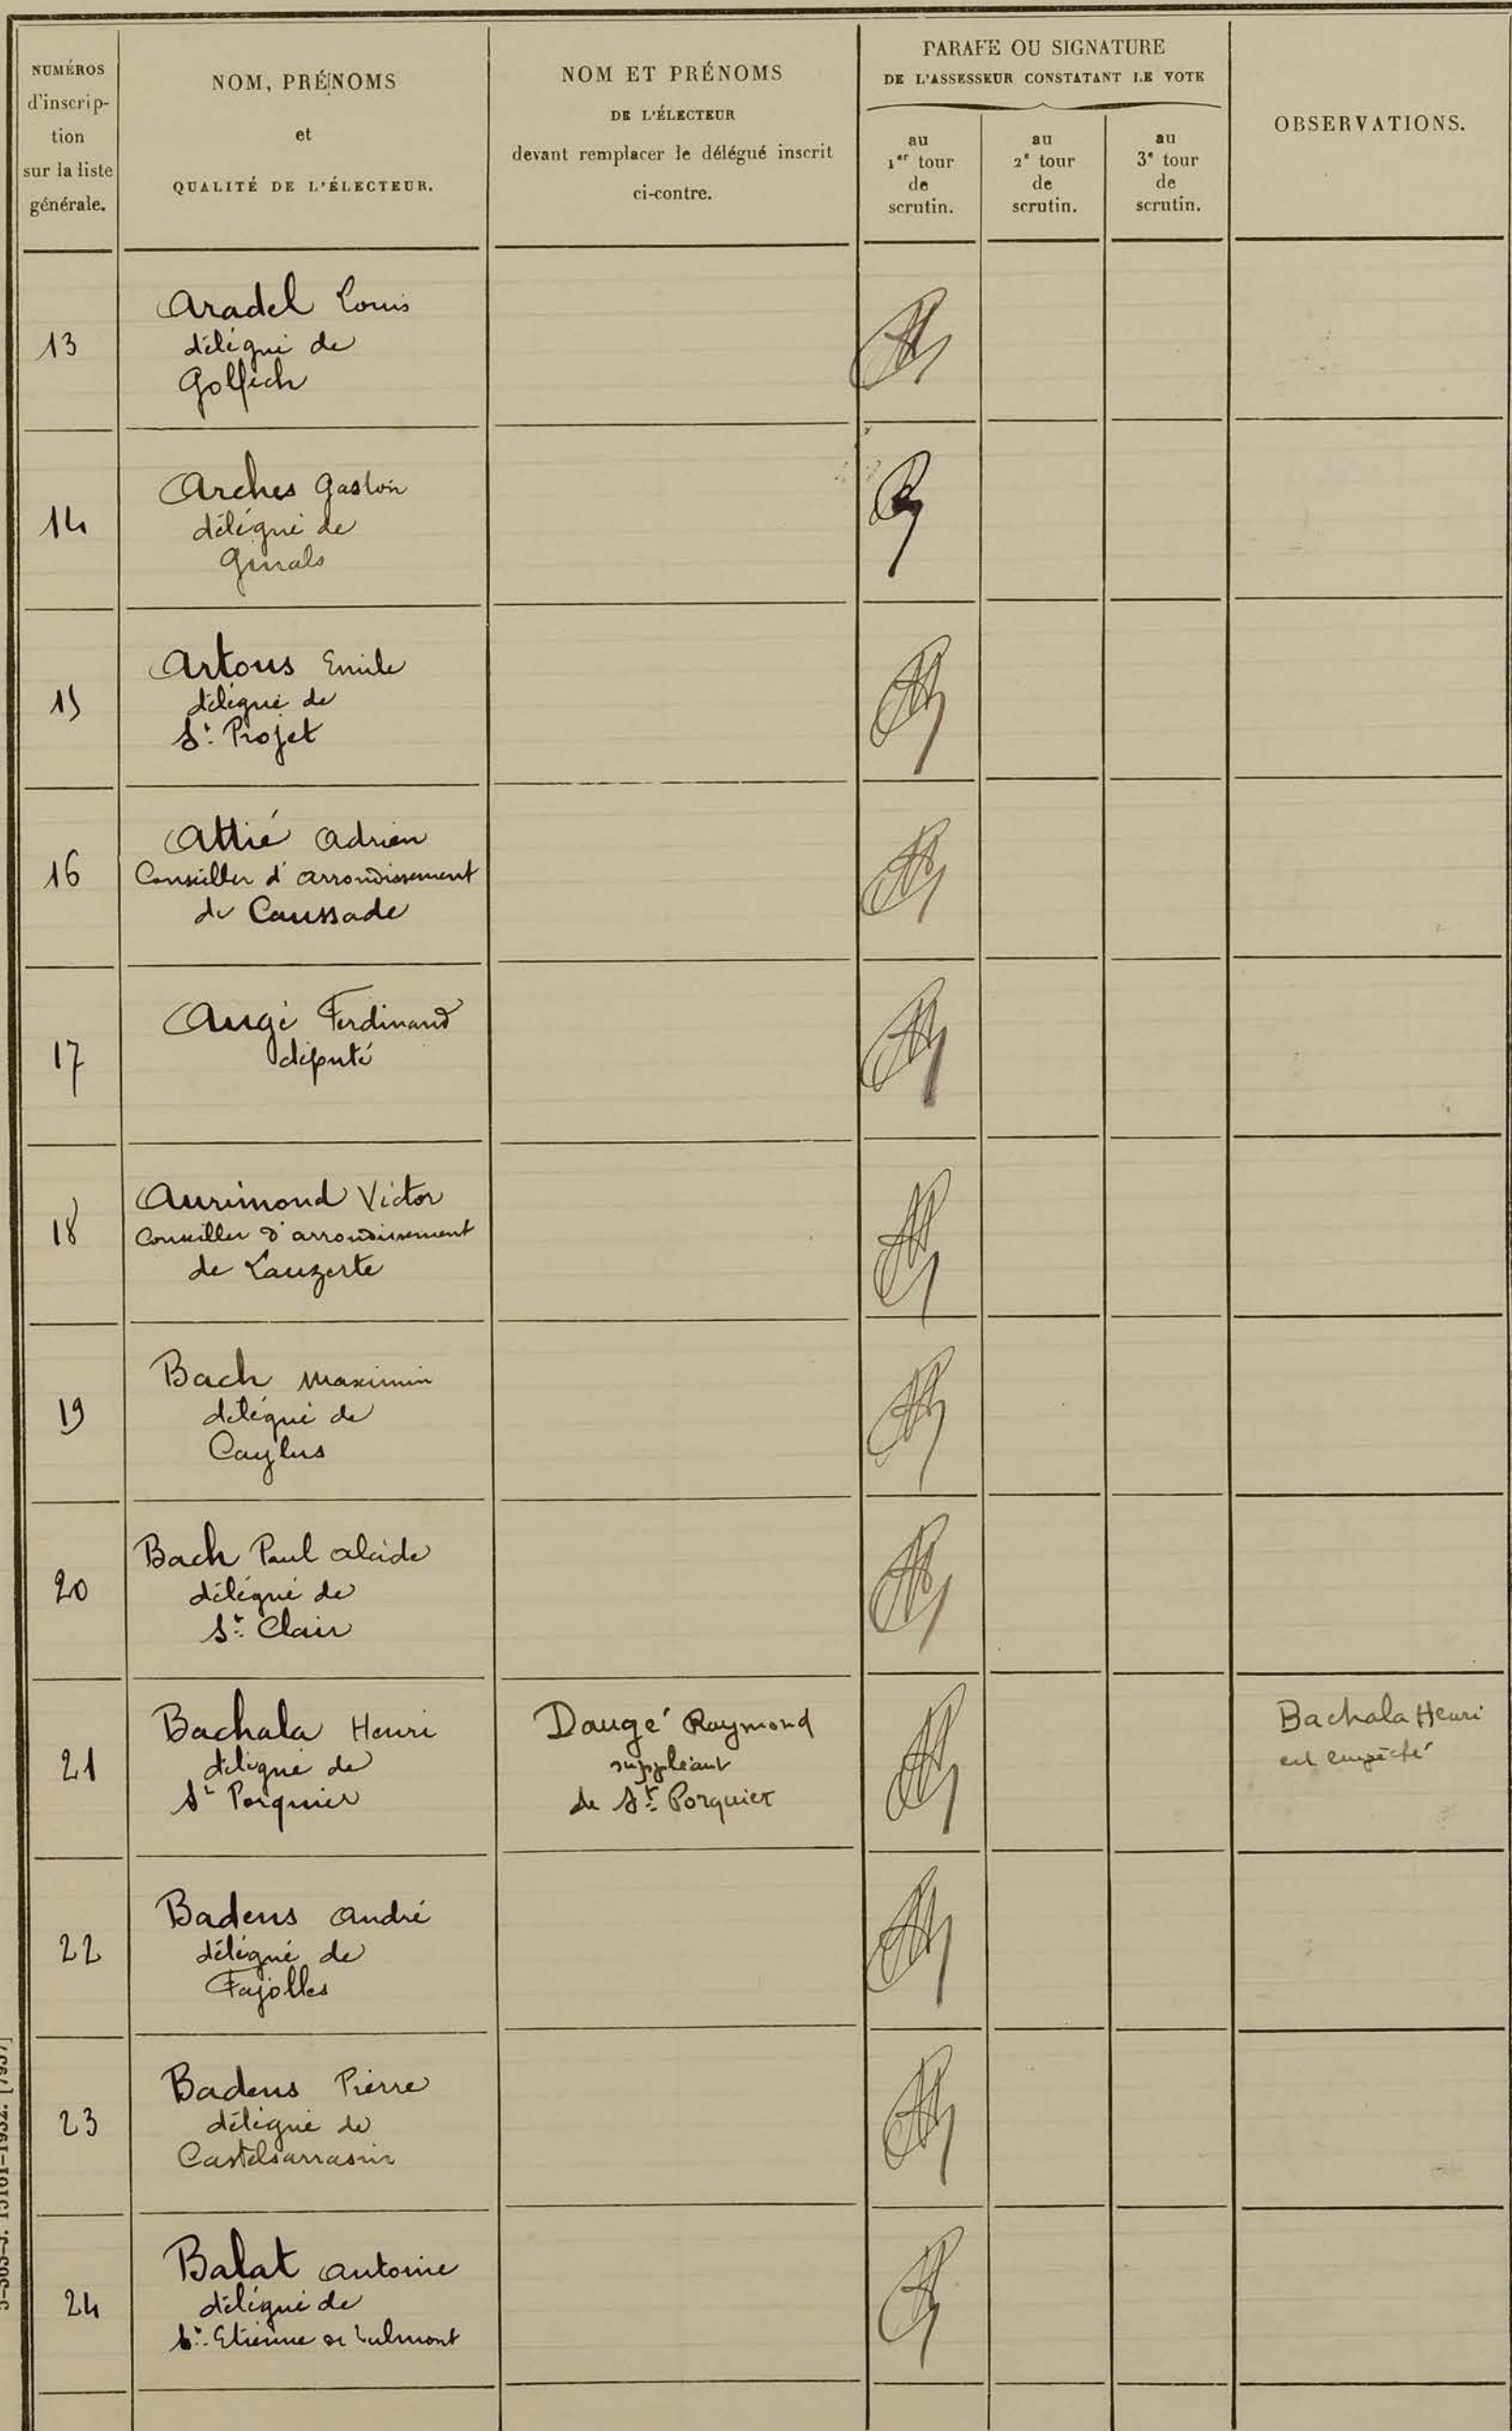 NUMÉROS
d'inscrip-
tion
sur la liste
générale.
NOM, PRÉNOMS
et
QUALITÉ DE L'ÉLECTEUR.
NOM ET PRÉNOMS
DE L'ÉLECTEUR
devant remplacer le délégué inscrit
ci-contre.
PARAFE OU SIGNATURE
DE L'ASSESSEUR CONSTATANT LE VOTE
au
1er tour
de
scrutin.
au
2e tour
de
scrutin.
au
3e tour
de
scrutin.
OBSERVATIONS.
13
Aradel Louis
délégué de
Golfech
14
Arches Gaston
délégué de
Ginals
15
Artous Emile
délégué de
St. Projet
16
Attié Adrien
Conseiller d'arrondissement
de Caussade
17
Augé Ferdinand
député
18
Aurimond Victor
Conseiller d'arrondissement
de Lauzerte
19
Bach Maximin
délégué de
Caylus
20
Bach Paul Alcide
délégué de
St. Clair
21
Bachala Henri
délégué de
St Porquier
Daugé Raymond
suppléant
de St. Porquier
Bachala Henri
est empêché
22
Badens André
délégué de
Fajolles
23
Badens Pierre
délégué de
Castelsarrasin
24
Balat Antoine
délégué de
St. Etienne de Tulmont